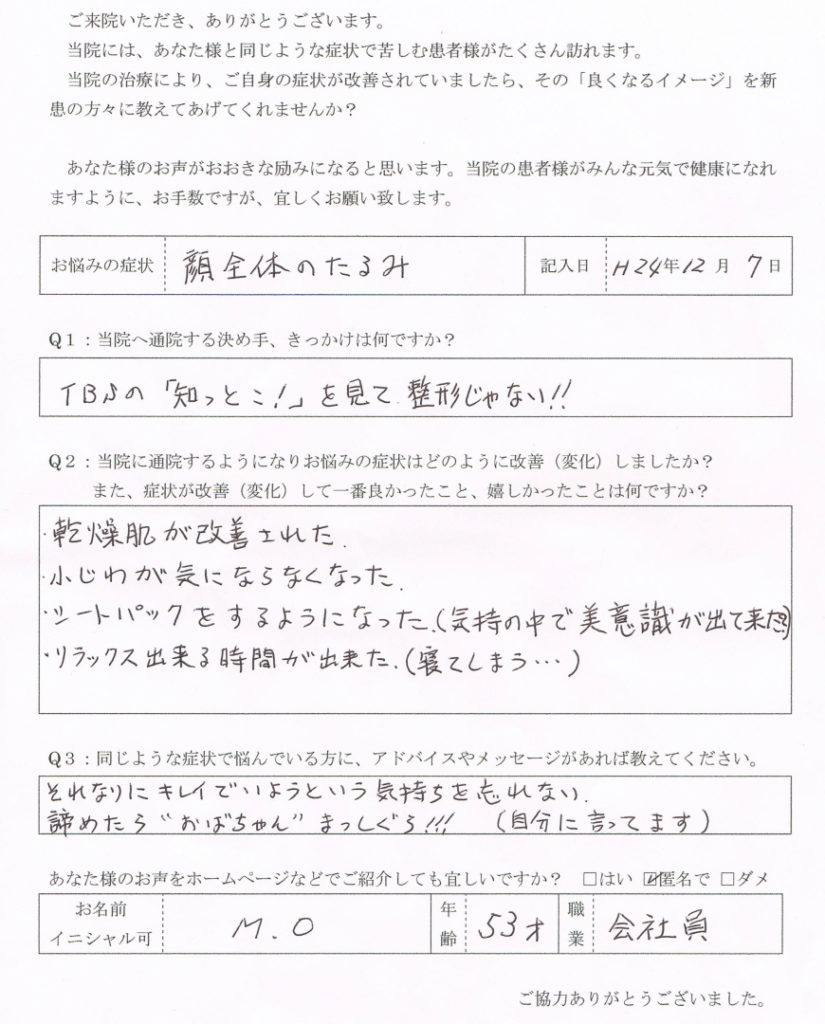 ご来院いただき、ありがとうございます。
当院には、あなた様と同じような症状で苦しむ患者様がたくさん訪れます。
当院の治療により、ご自身の症状が改善されていましたら、その「良くなるイメージ」を新
患の方々に教えてあげてくれませんか？
あなた様のお声がおおきな励みになると思います。当院の患者様がみんな元気で健康になれ
ますように、お手数ですが、宜しくお願い致します。
お悩みの症状 顔全体のたるみ 記入日 H24年12月7日
Q1：当院へ通院する決め手、きっかけは何ですか？
TBSの「知っとこ!」を見て.整形じゃない!!
Q2：当院に通院するようになりお悩みの症状はどのように改善（変化）しましたか？
また、症状が改善（変化）して一番良かったこと、嬉しかったことは何ですか？
・乾燥肌が改善された.
・小じわが気にならなくなった.
・シートパックをするようになった.(気持の中で美意識が出て来た)
・リラックス出来る時間が出来た.(寝てしまう…)
Q3：同じような症状で悩んでいる方に、アドバイスやメッセージがあれば教えてください。
それなりにキレイでいようという気持ちを忘れない.
諦めたら“おばちゃん”まっしぐら!!! (自分に言ってます)
あなた様のお声をホームページなどでご紹介しても宜しいですか？ □はい ☑匿名で □ダメ
お名前 イニシャル可 M.O 年齢 53才 職業 会社員
ご協力ありがとうございました。